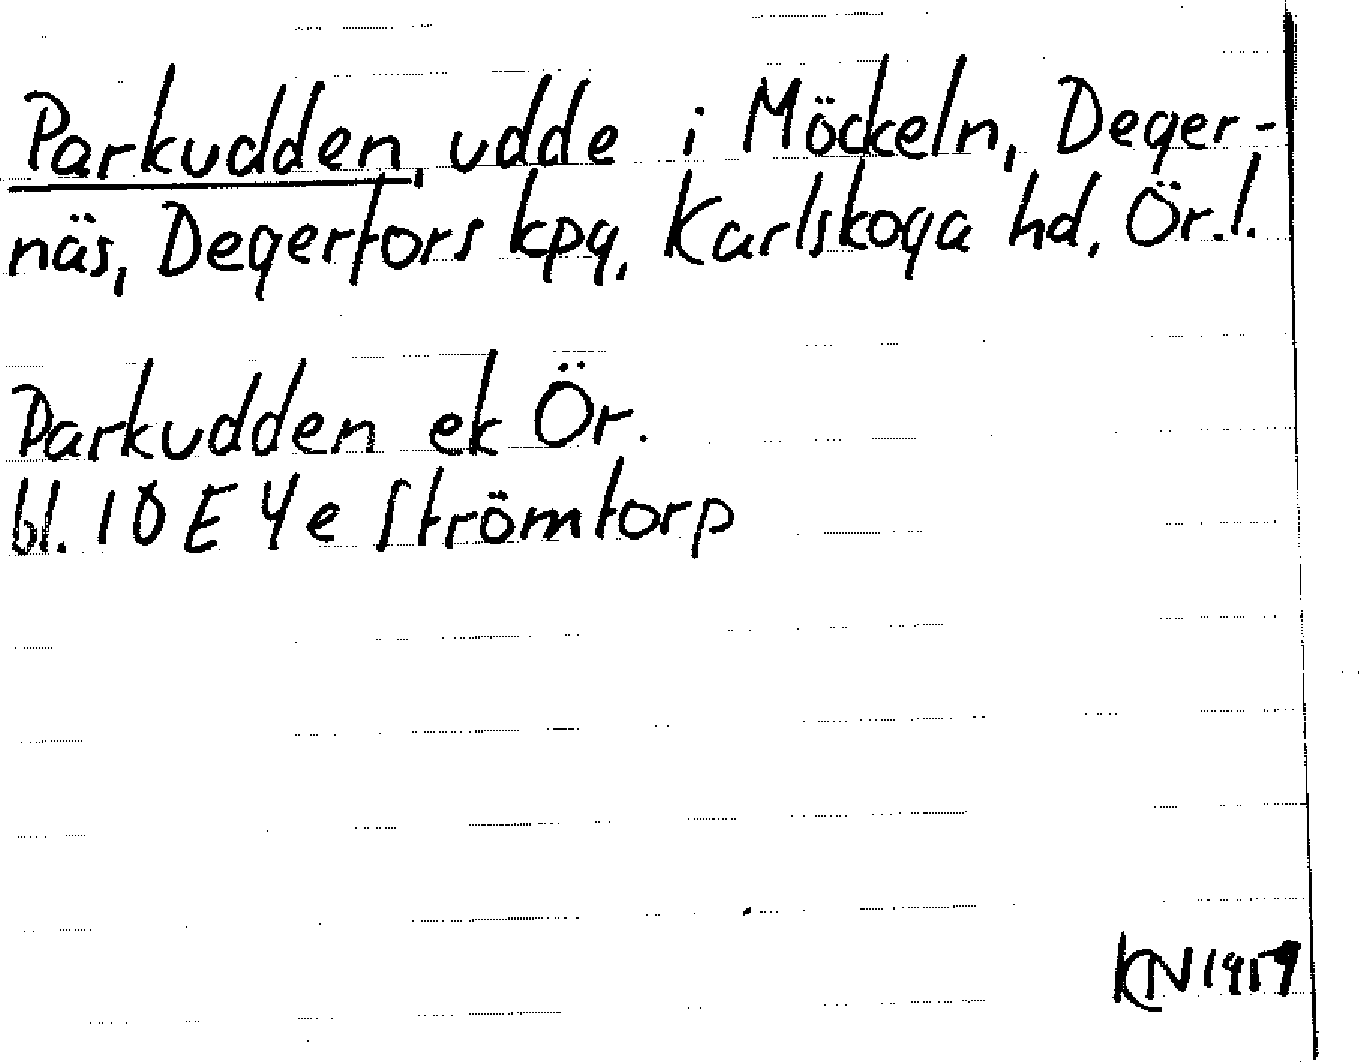 Parkudden, udde i Möckeln, Deger-
näs, Degerfors kpg, Karlskoga hd, Ör.l.
Parkudden ek Ör.
bl. 10 E 4e Strömtorp
KN 1959